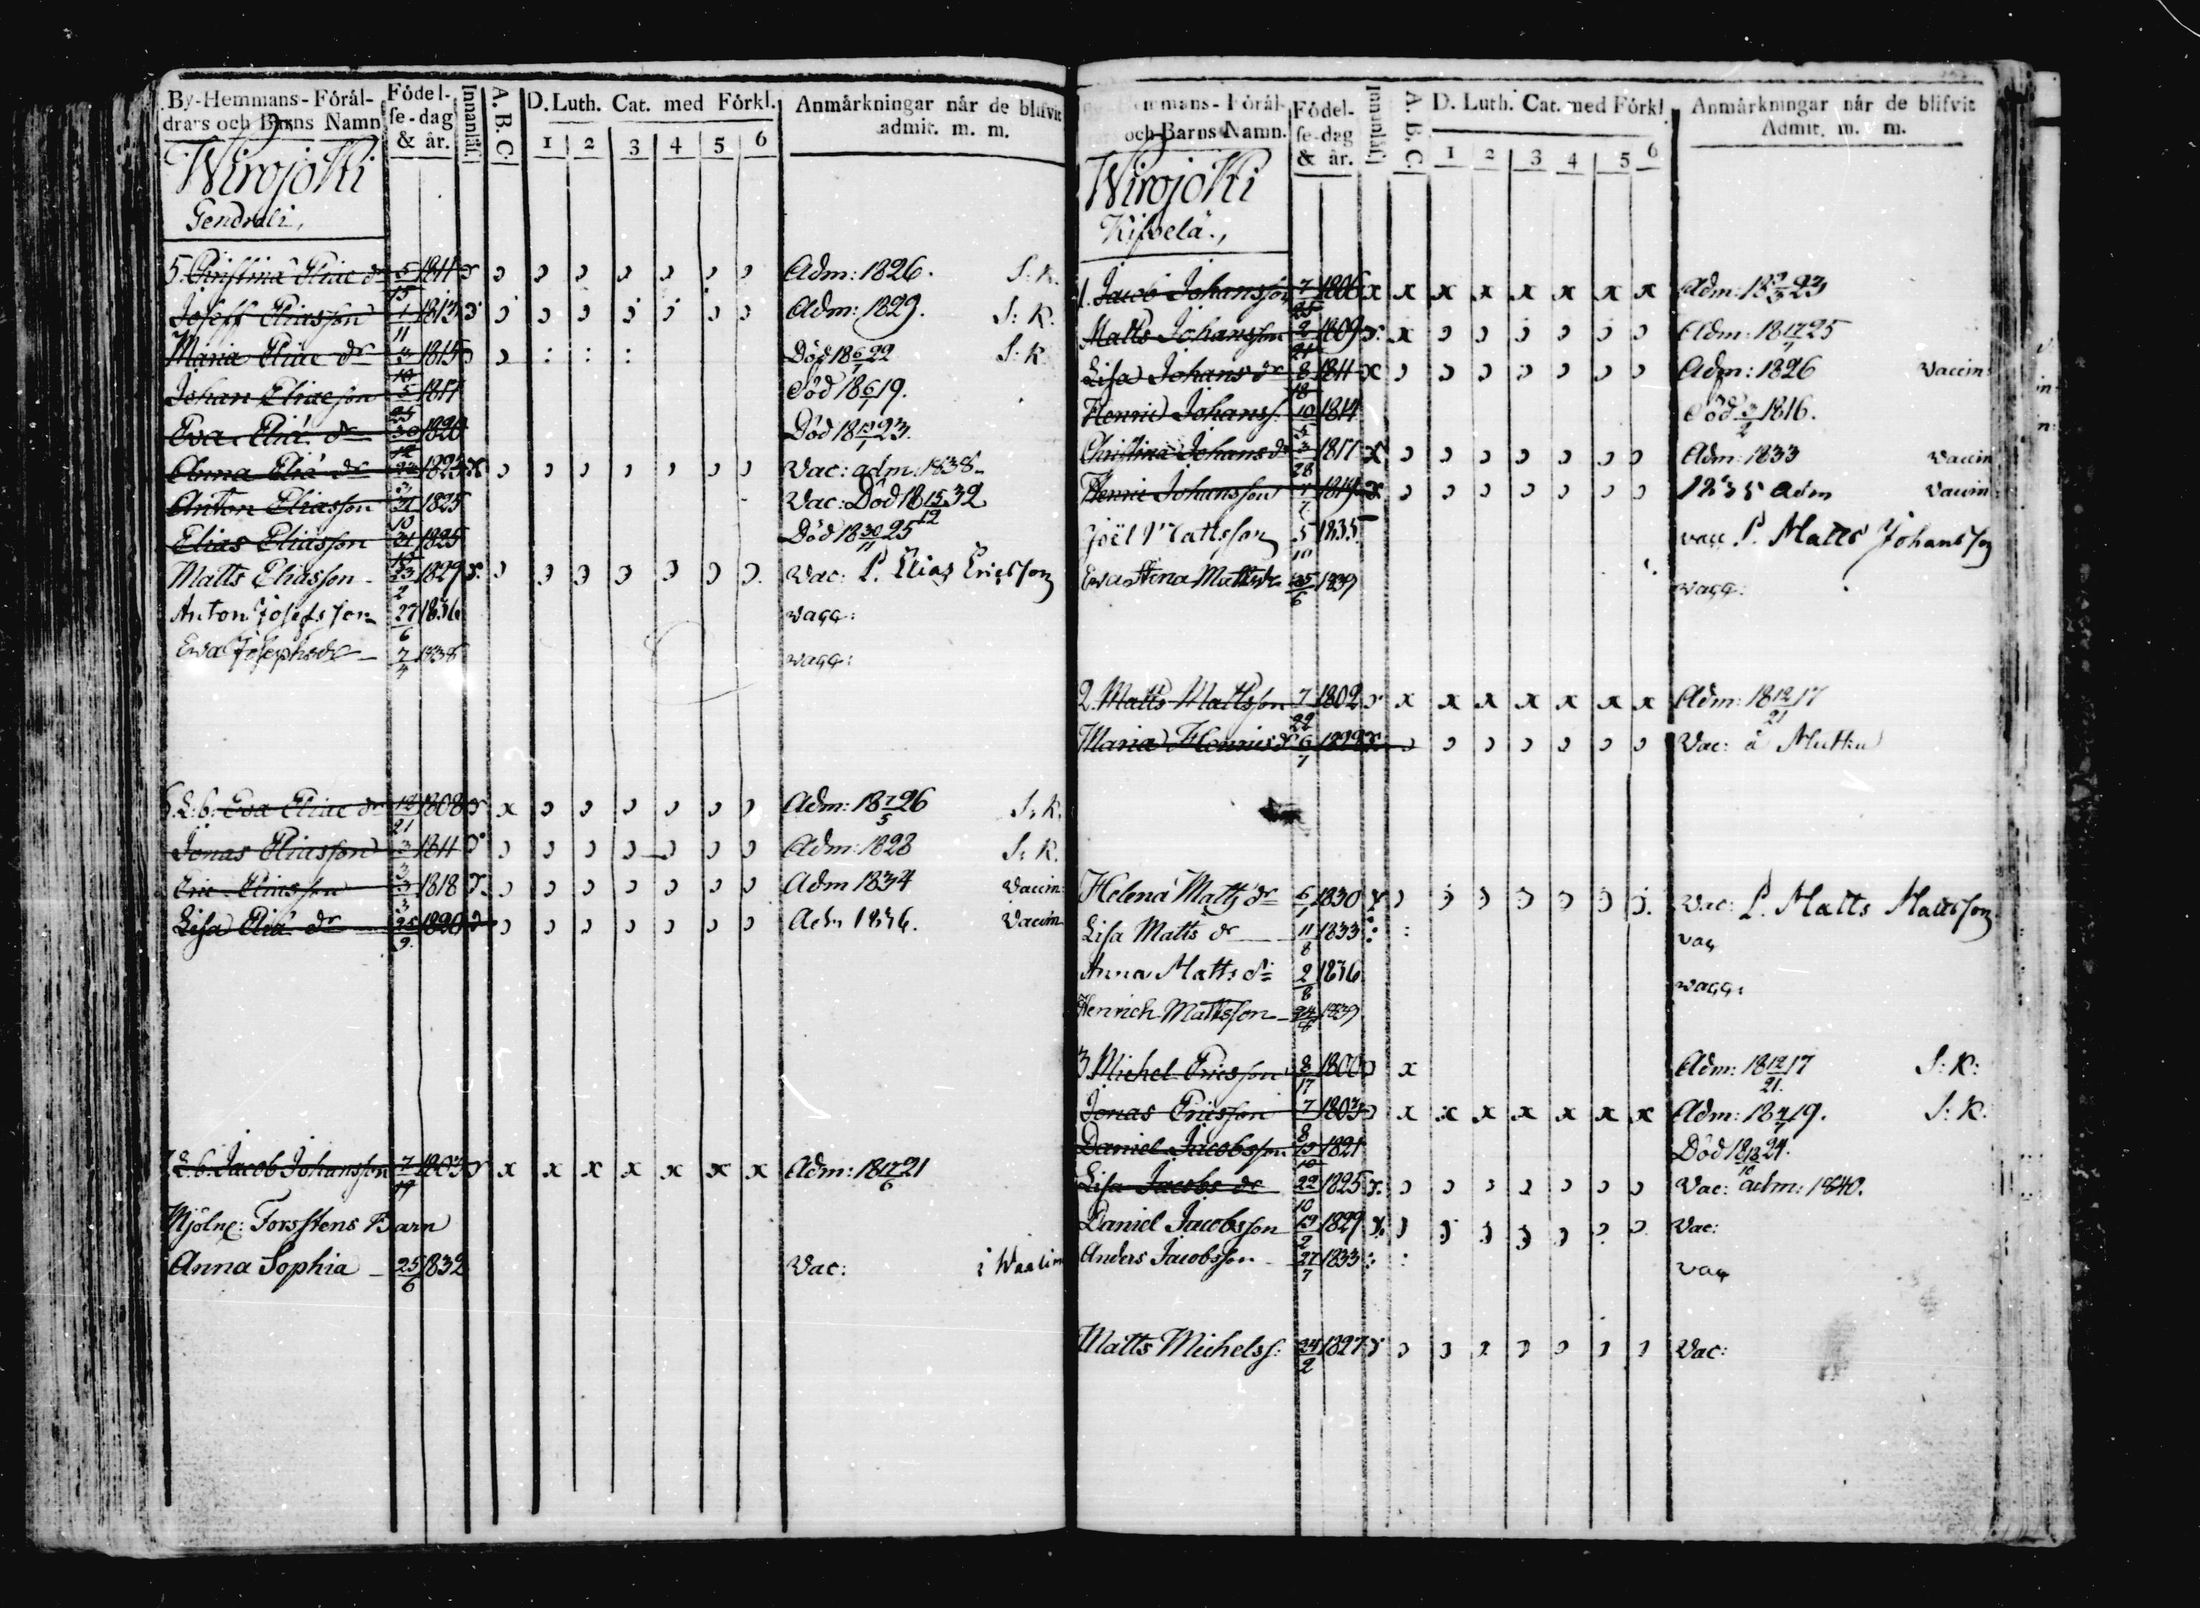 By-Hemmans-Föräl-
drars och Barns Namn
Födel-
se-dag
& år.
Innanläs.
A. B. C.
D. Luth. Cat. med Förkl.
1 2 3 4 5 6
Anmärkningar när de blifvit
admit. m. m.
Wirojoki
Gendrali,
5. Christina Eliae dr 5/15 1811 Adm: 1826. S: K.
Joseff Eliasson 1/11 1813 Adm: 1829. S: K.
Maria Eliae dr 1815 Död 18 6/1 22 S: K
Johan Eliaeson 1817 Död 18 6/1 19.
Eva Eliae dr 1820 Död 18 13/1 23.
Anna Elia dr 1823 Vac: adm. 1838
Anton Eliasson 31 1825 Vac: Död 18 15/12 32
Elias Eliasson 31 1825 Död 18 30/11 25
Matts Eliasson 23/2 1829 Vac: P. Elias Ericsson
Anton Josefsson 27/6 1836 vacc:
Eva Josephsdr 7/4 1838 vacc:
6. L: b: Eva Eliae dr 12/21 1808 x Adm: 18 7/5 26 S: K.
Jonas Eliasson 3/3 1811 Adm: 1828 S: K.
Eric Eliasson 1818 Adm 1834 Vaccin:
Lisa Elia dr 25/9 1820 Adm 1836. Vaccin
L: b. Jacob Johansson 7/19 1803 x x x x x x x Adm: 18 17/6 21
Mjöln: Forsstens Barn
Anna Sophia 25/6 1832 Vac: i Waalim
och Barns Namn.
Födel-
se-dag
& år.
Innanläs.
A. B. C.
D. Luth. Cat. med Förkl.
1 2 3 4 5 6
Anmärkningar när de blifvit
Admit. m. m.
Wirojoki
Kifvelä.,
1. Jacob Johansson 7/25 1806 x x x x x x x x Adm: 18 23
Matts Johansson 2/21 1809 x Adm: 18 17/7 25
Lisa Johans dr 8/18 1811 x Adm: 1826 Vaccin:
Henric Johanss. 10 1814 Död 3/2 1816.
Christina Johansdr 3/28 1817 x Adm: 1833 Vaccin
Henric Johansson 1819 x 1835 adm Vaccin
Joël Mattsson 5/10 1835 vacc P. Matts Johansson
Eva Stina Mattsdr 25/6 1839 vacc:
2. Matts Mattsson 7/22 1802 x x x x x x x Adm: 18 12/21 17
Maria Henricsdr 6/7 1822 Vac: å Mutka
Helena Matts dr 6/1 1830 Vac: P. Matts Mattsson
Lisa Matts dr 11/8 1833 vac
Anna Matts dr 2/8 1836 vacc:
Henrich Mattsson 24/8 1839
3. Michel Ericsson 8/17 1800 x Adm: 18 12/21 17 S: K:
Jonas Ericsson 7/8 1803 x x x x x x x Adm: 18 4/7 19. S: K.
Daniel Jacobsson 13/10 1821 Död 18 18/10 24.
Lisa Jacobs dr 22/10 1825 Vac: adm: 1840.
Daniel Jacobsson 19/2 1829 Vac:
Anders Jacobsson 27/7 1833 vac
Matts Michelss: 24/2 1827 Vac: